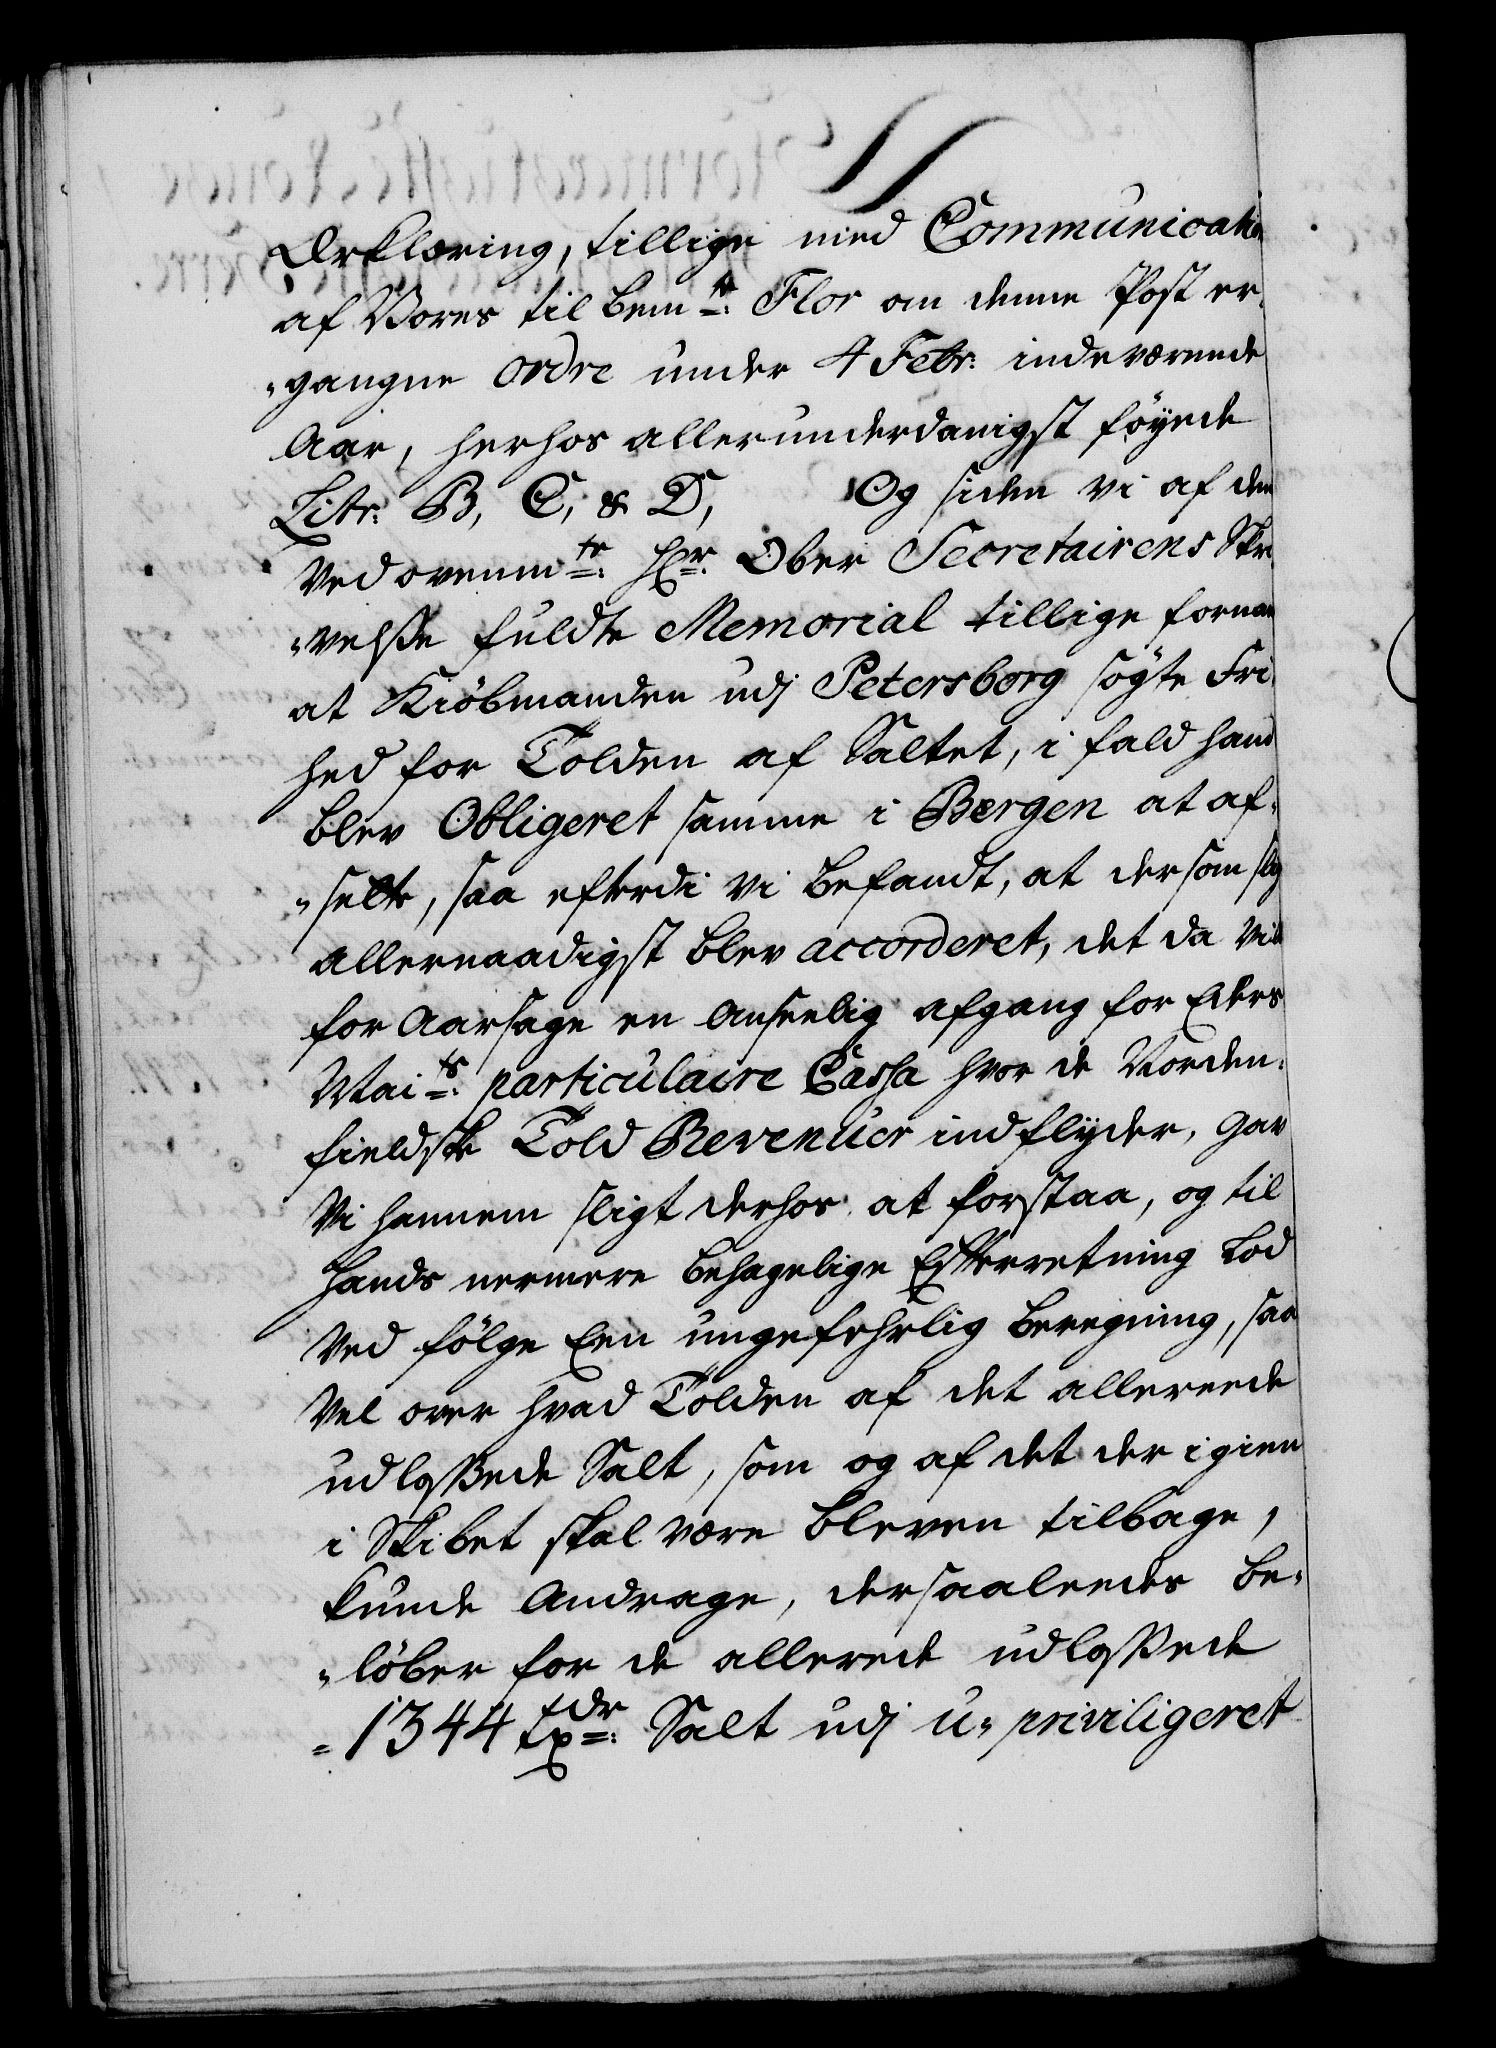 Erklæring, tillige med Communication
af Vores til bemte: Flor om denne Post er„
„gangne ordre under 4 Febr: indeværende
Aar, herhos allerunderdanigst föyede
Litr: B, C, & D, Og siden vi af den
Ved ovenmte: Hr: Ober Secretairens Skri
„velsse fuldte Memorial tillige fornam
at Kiöbmanden udj Petersborg sögte Fri
hed for Tolden af Saltet, i fald hand
blev Obligeret samme i Bergen at af„
„sette, saa efterdi vi befandt, at dersom slig
allernaadigst blev accorderet, det da vil
for Aarsage en Anseelig afgang for Eders
Maits: particulaire Cassa hvor de Norden„
fieldske Told Revenuer indflyder, gav
Vi hannem sligt derhos at forstaa, og til
Hands nermere behagelige Efterretning Lod
Ved fölge Een ungefehrlig beregning, saa
Vel over hvad Tolden af det allereede
udlossede Salt, som og af det der igien
i Skibet skal være bleven tilbage,
kunde Andrage, dersaaleedes be„
„löber for de allerede udlossede
„1344 Tdr: Salt udj u„priviligeret